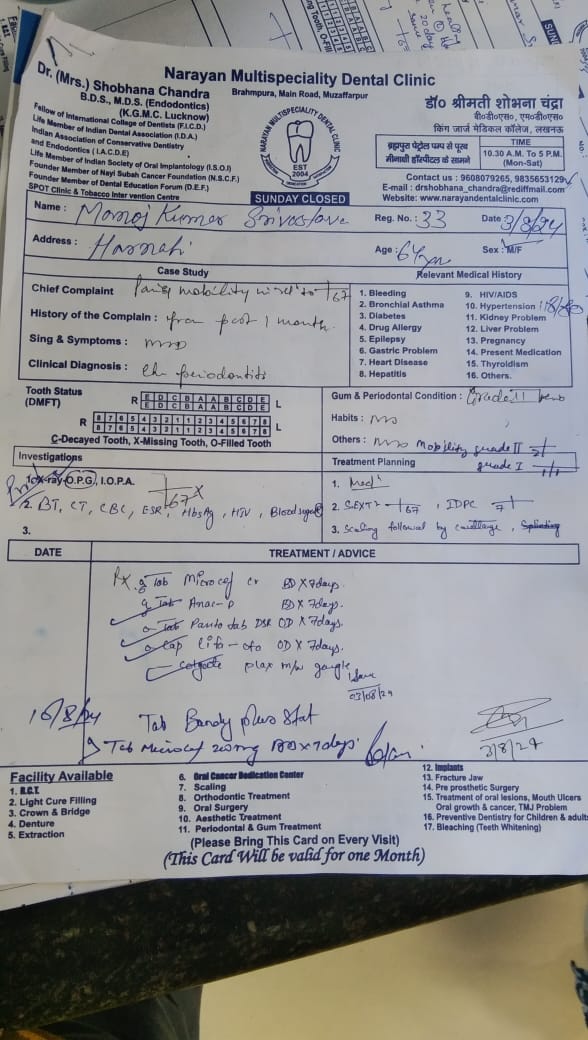 Narayan Multispeciality Dental Clinic
Brahmpura, Main Road, Muzaffarpur
Dr. (Mrs.) Shobhana Chandra
B.D.S., M.D.S. (Endodontics)
(K.G.M.C. Lucknow)
Fellow of International College of Dentists (F.I.C.D.)
Life Member of Indian Dental Association (I.D.A.)
Indian Association of Conservative Dentistry
and Endodontics (I.A.C.D.E)
Life Member of Indian Society of Oral Implantology (I.S.O.I)
Founder Member of Nayi Subah Cancer Foundation (N.S.C.F.)
Founder Member of Dental Education Forum (D.E.F.)
SPOT Clinic & Tobacco Inter vention Centre
NARAYAN MULTISPECIALITY DENTAL CLINIC
EST
2004
SUNDAY CLOSED
डॉ० श्रीमती शोभना चंद्रा
बी०डी०एस०, एम०डी०एस०
किंग जार्ज मेडिकल कॉलेज, लखनऊ
ब्रह्मपुरा पेट्रोल पम्प से पूरब
मीनाक्षी हॉस्पिटल के सामने
TIME
10.30 A.M. To 5 P.M.
(Mon-Sat)
Contact us : 9608079265, 9835653129
E-mail : drshobhana_chandra@rediffmail.com
Website: www.narayandentalclinic.com
Name : Manoj Kumar Srivastava Reg. No. : 33 Date 3/8/24
Address : Age : 64 Sex : M/F
Case Study
Chief Complaint Pain & mobility
History of the Complain : from past 1 month
Sing & Symptoms :
Clinical Diagnosis : Ch periodontitis
Relevant Medical History
1. Bleeding
2. Bronchial Asthma
3. Diabetes
4. Drug Allergy
5. Epilepsy
6. Gastric Problem
7. Heart Disease
8. Hepatitis
9. HIV/AIDS
10. Hypertension
11. Kidney Problem
12. Liver Problem
13. Pregnancy
14. Present Medication
15. Thyroidism
16. Others.
Tooth Status
(DMFT)
R E D C B A A B C D E L
E D C B A A B C D E
R 8 7 6 5 4 3 2 1 1 2 3 4 5 6 7 8 L
8 7 6 5 4 3 2 1 1 2 3 4 5 6 7 8
C-Decayed Tooth, X-Missing Tooth, O-Filled Tooth
Gum & Periodontal Condition : Grade II
Habits :
Others : Mobility grade II
grade I
Investigations
X-ray-O.P.G, I.O.P.A. 67
2. BT, CT, CBC, ESR, HbsAg, HIV, Blood sugar
3.
Treatment Planning
1. Med
2. 67, 7
3. Scaling followed by
DATE
TREATMENT / ADVICE
Rx Tab Microcef cv BD X 7days.
Tab Anac-P BD X 7days.
Tab Panto tab DSR OD X 7days.
Cap OD X 7days.
Colgate plax m/w gargle
03/08/24
16/8/24 Tab Bandy plus Stat
Tab Microcef 200mg BD X 7days
3/8/24
Facility Available
1. R.C.T.
2. Light Cure Filling
3. Crown & Bridge
4. Denture
5. Extraction
6. Oral Cancer Dedication Center
7. Scaling
8. Orthodontic Treatment
9. Oral Surgery
10. Aesthetic Treatment
11. Periodontal & Gum Treatment
12. Implants
13. Fracture Jaw
14. Pre prosthetic Surgery
15. Treatment of oral lesions, Mouth Ulcers
Oral growth & cancer, TMJ Problem
16. Preventive Dentistry for Children & adults
17. Bleaching (Teeth Whitening)
(Please Bring This Card on Every Visit)
(This Card Will be valid for one Month)